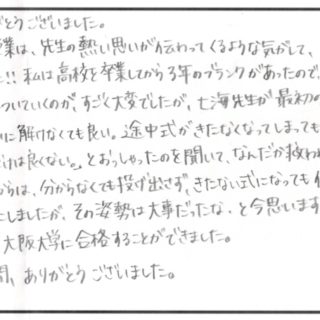 がとうございました。
業は、先生の熱い思いが伝わってくるような気がして、
!! 私は高校を卒業してから3年のブランクがあったので、
ついていくのが、すごく大変でしたが、七海先生が最初の
に解けなくても良い。途中式がきたなくなってしまっても
けは良くない。」とおっしゃったのを聞いて、なんだか救われ
からは、分からなくても投げ出さず、きたない式になっても
にしましたが、その姿勢は大事だったな、と今思います
大阪大学に合格することができました。
間、ありがとうございました。